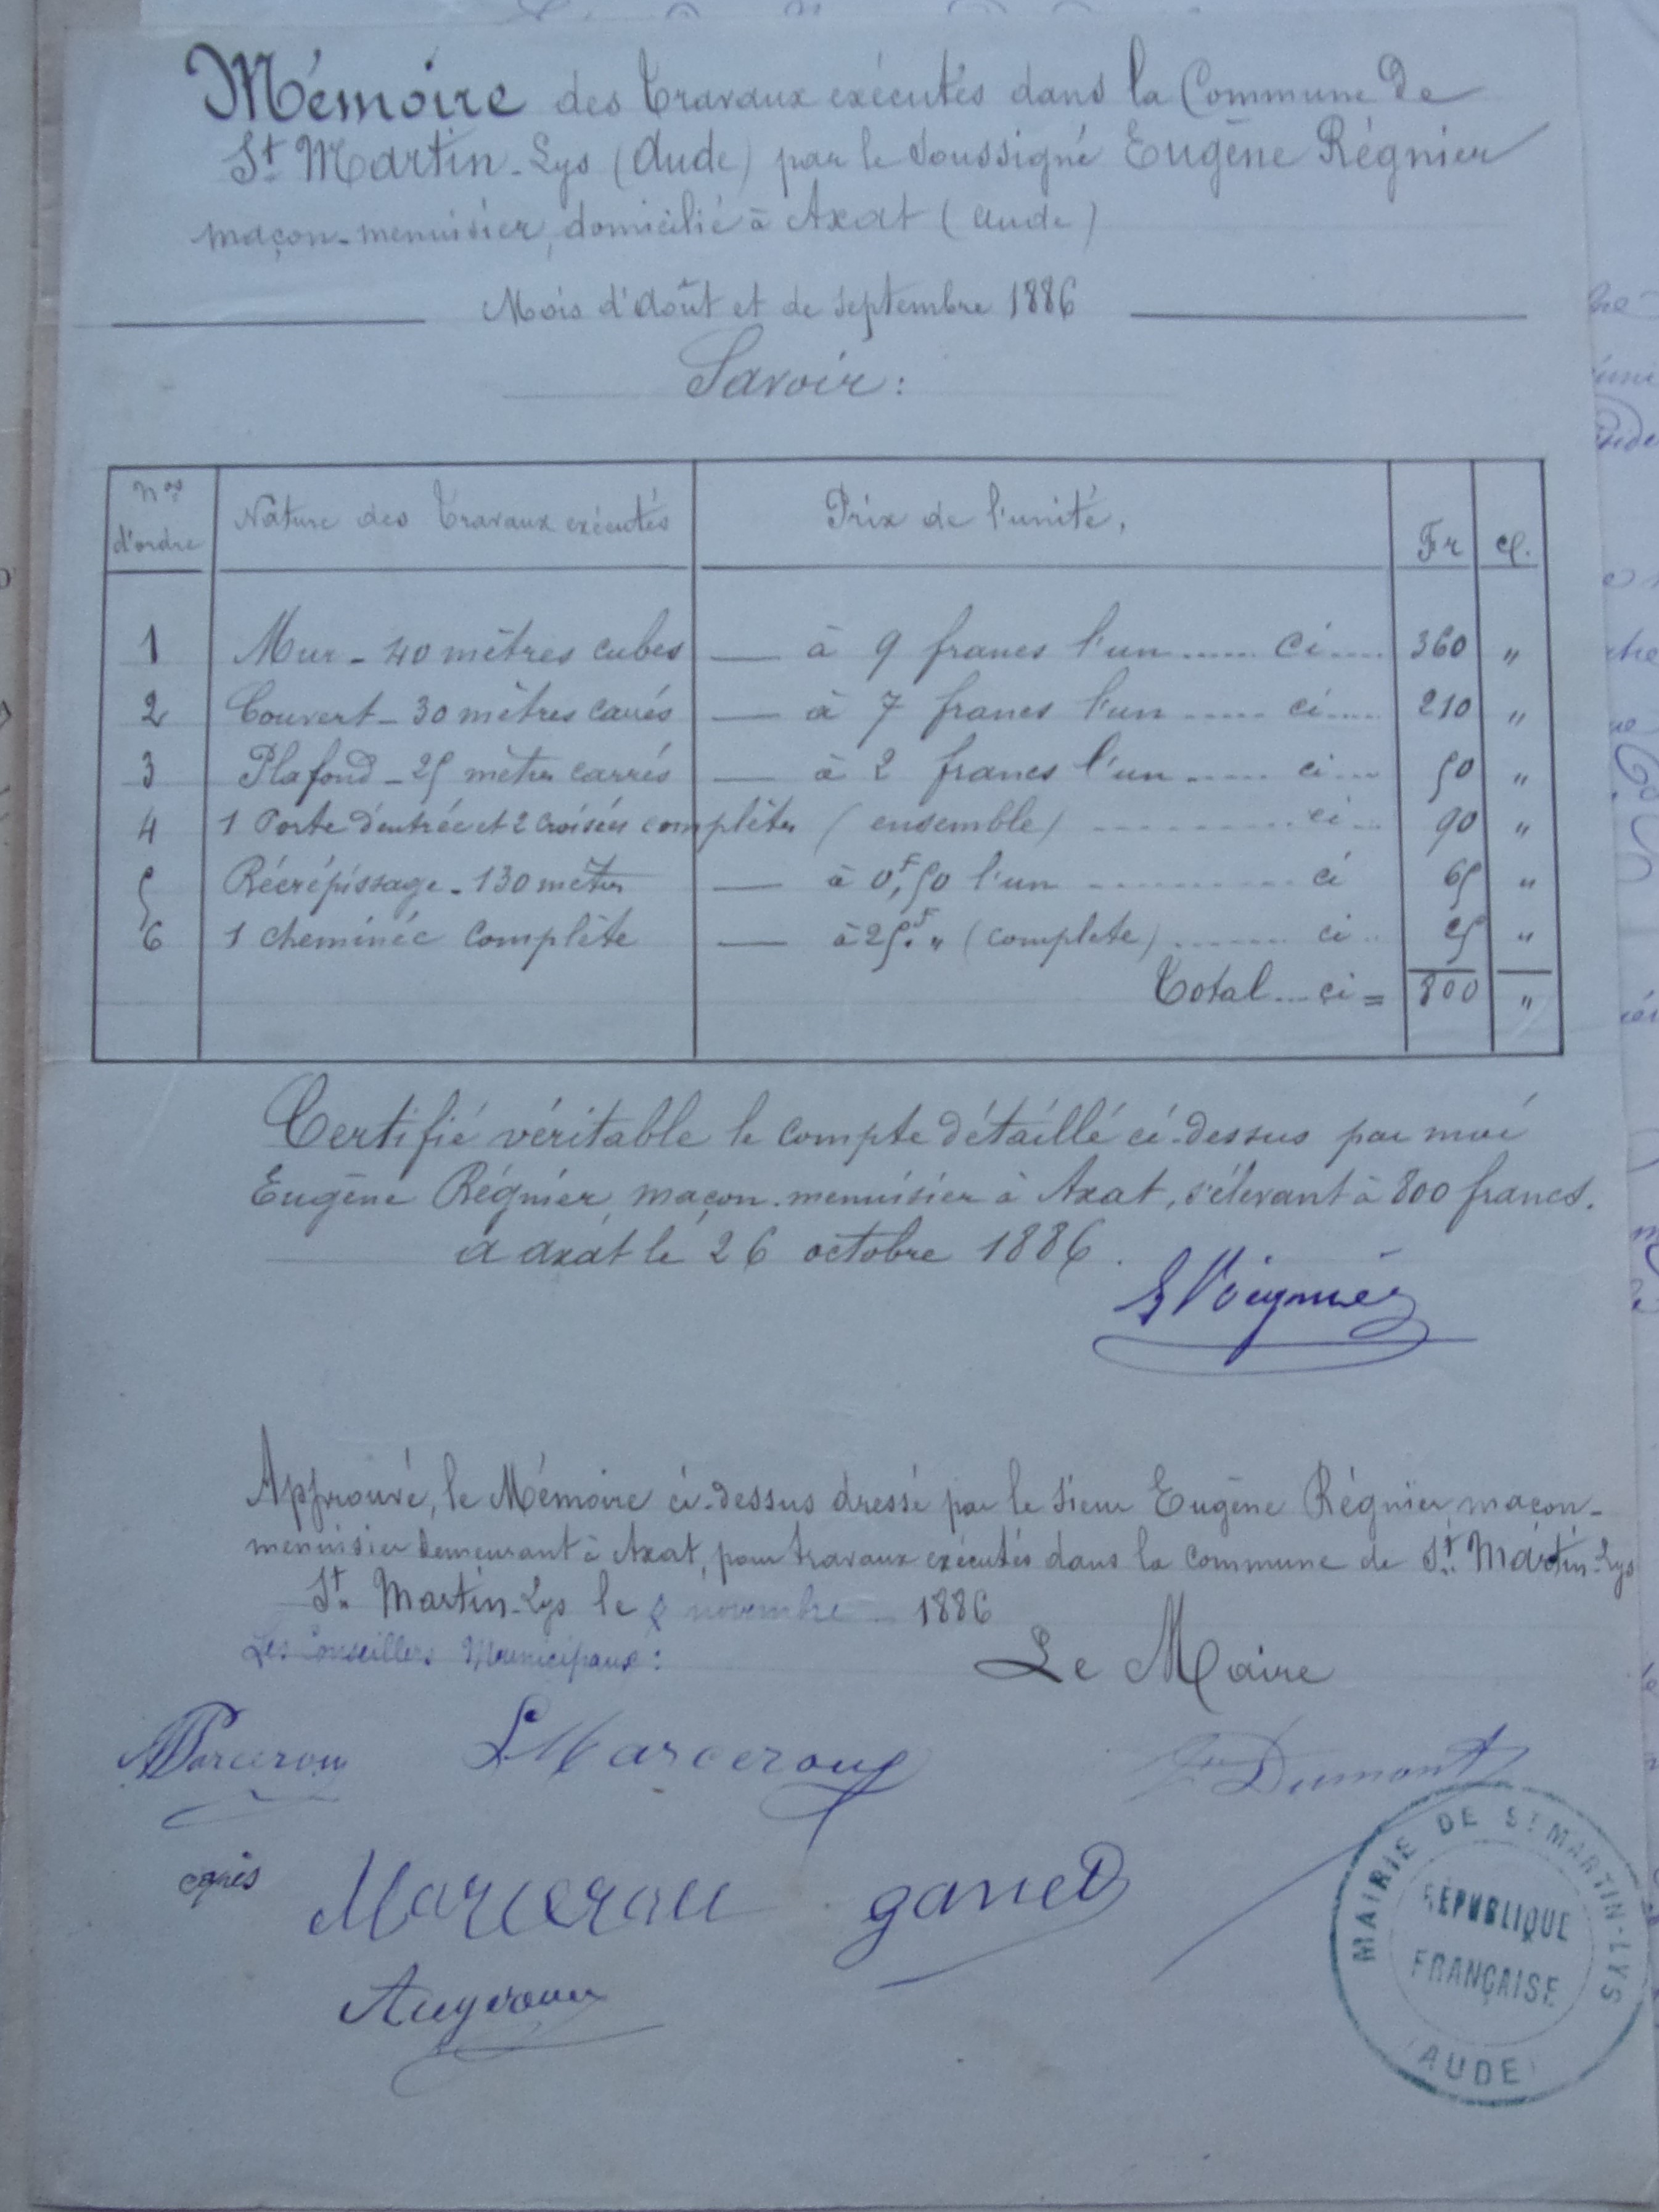 Mémoire des Travaux exécutés dans la Commune de
St Martin-Lys (Aude) par le soussigné Eugène Régnier
maçon-menuisier, domicilié à Axat (Aude)
Mois d'Août et de septembre 1886
Savoir:
Nos d'ordre | Nature des Travaux exécutés | Prix de l'unité, | Fr | c.
1 Mur - 40 mètres cubes — à 9 francs l'un ...... ci .... 360 "
2 Couvert - 30 mètres carrés — à 7 francs l'un ..... ci ..... 210 "
3 Plafond - 25 mètres carrés — à 2 francs l'un ..... ci ... 50 "
4 1 Porte d'entrée et 2 croisées complètes (ensemble) .......... ci ... 90 "
5 Récrépissage - 130 mètres — à 0F,50 l'un .......... ci 65 "
6 1 cheminée complète — à 25F. " (complete) ....... ci .. 25 "
Total ... ci = 800 "
Certifié véritable le compte détaillé ci-dessus par moi
Eugène Régnier, maçon-menuisier à Axat, s'élevant à 800 francs.
à axat le 26 octobre 1886.
Approuvé, le Mémoire ci-dessus dressé par le sieur Eugène Régnier, maçon-
menuisier demeurant à Axat, pour travaux exécutés dans la commune de St. Martin-Lys
St. Martin-Lys le novembre 1886
Les Conseillers Municipaux:
Le Maire
Marcerou
LMarcerou
Dumont
Marcerou
MAIRIE DE ST MARTIN-LYS
RÉPUBLIQUE
FRANÇAISE
(AUDE)